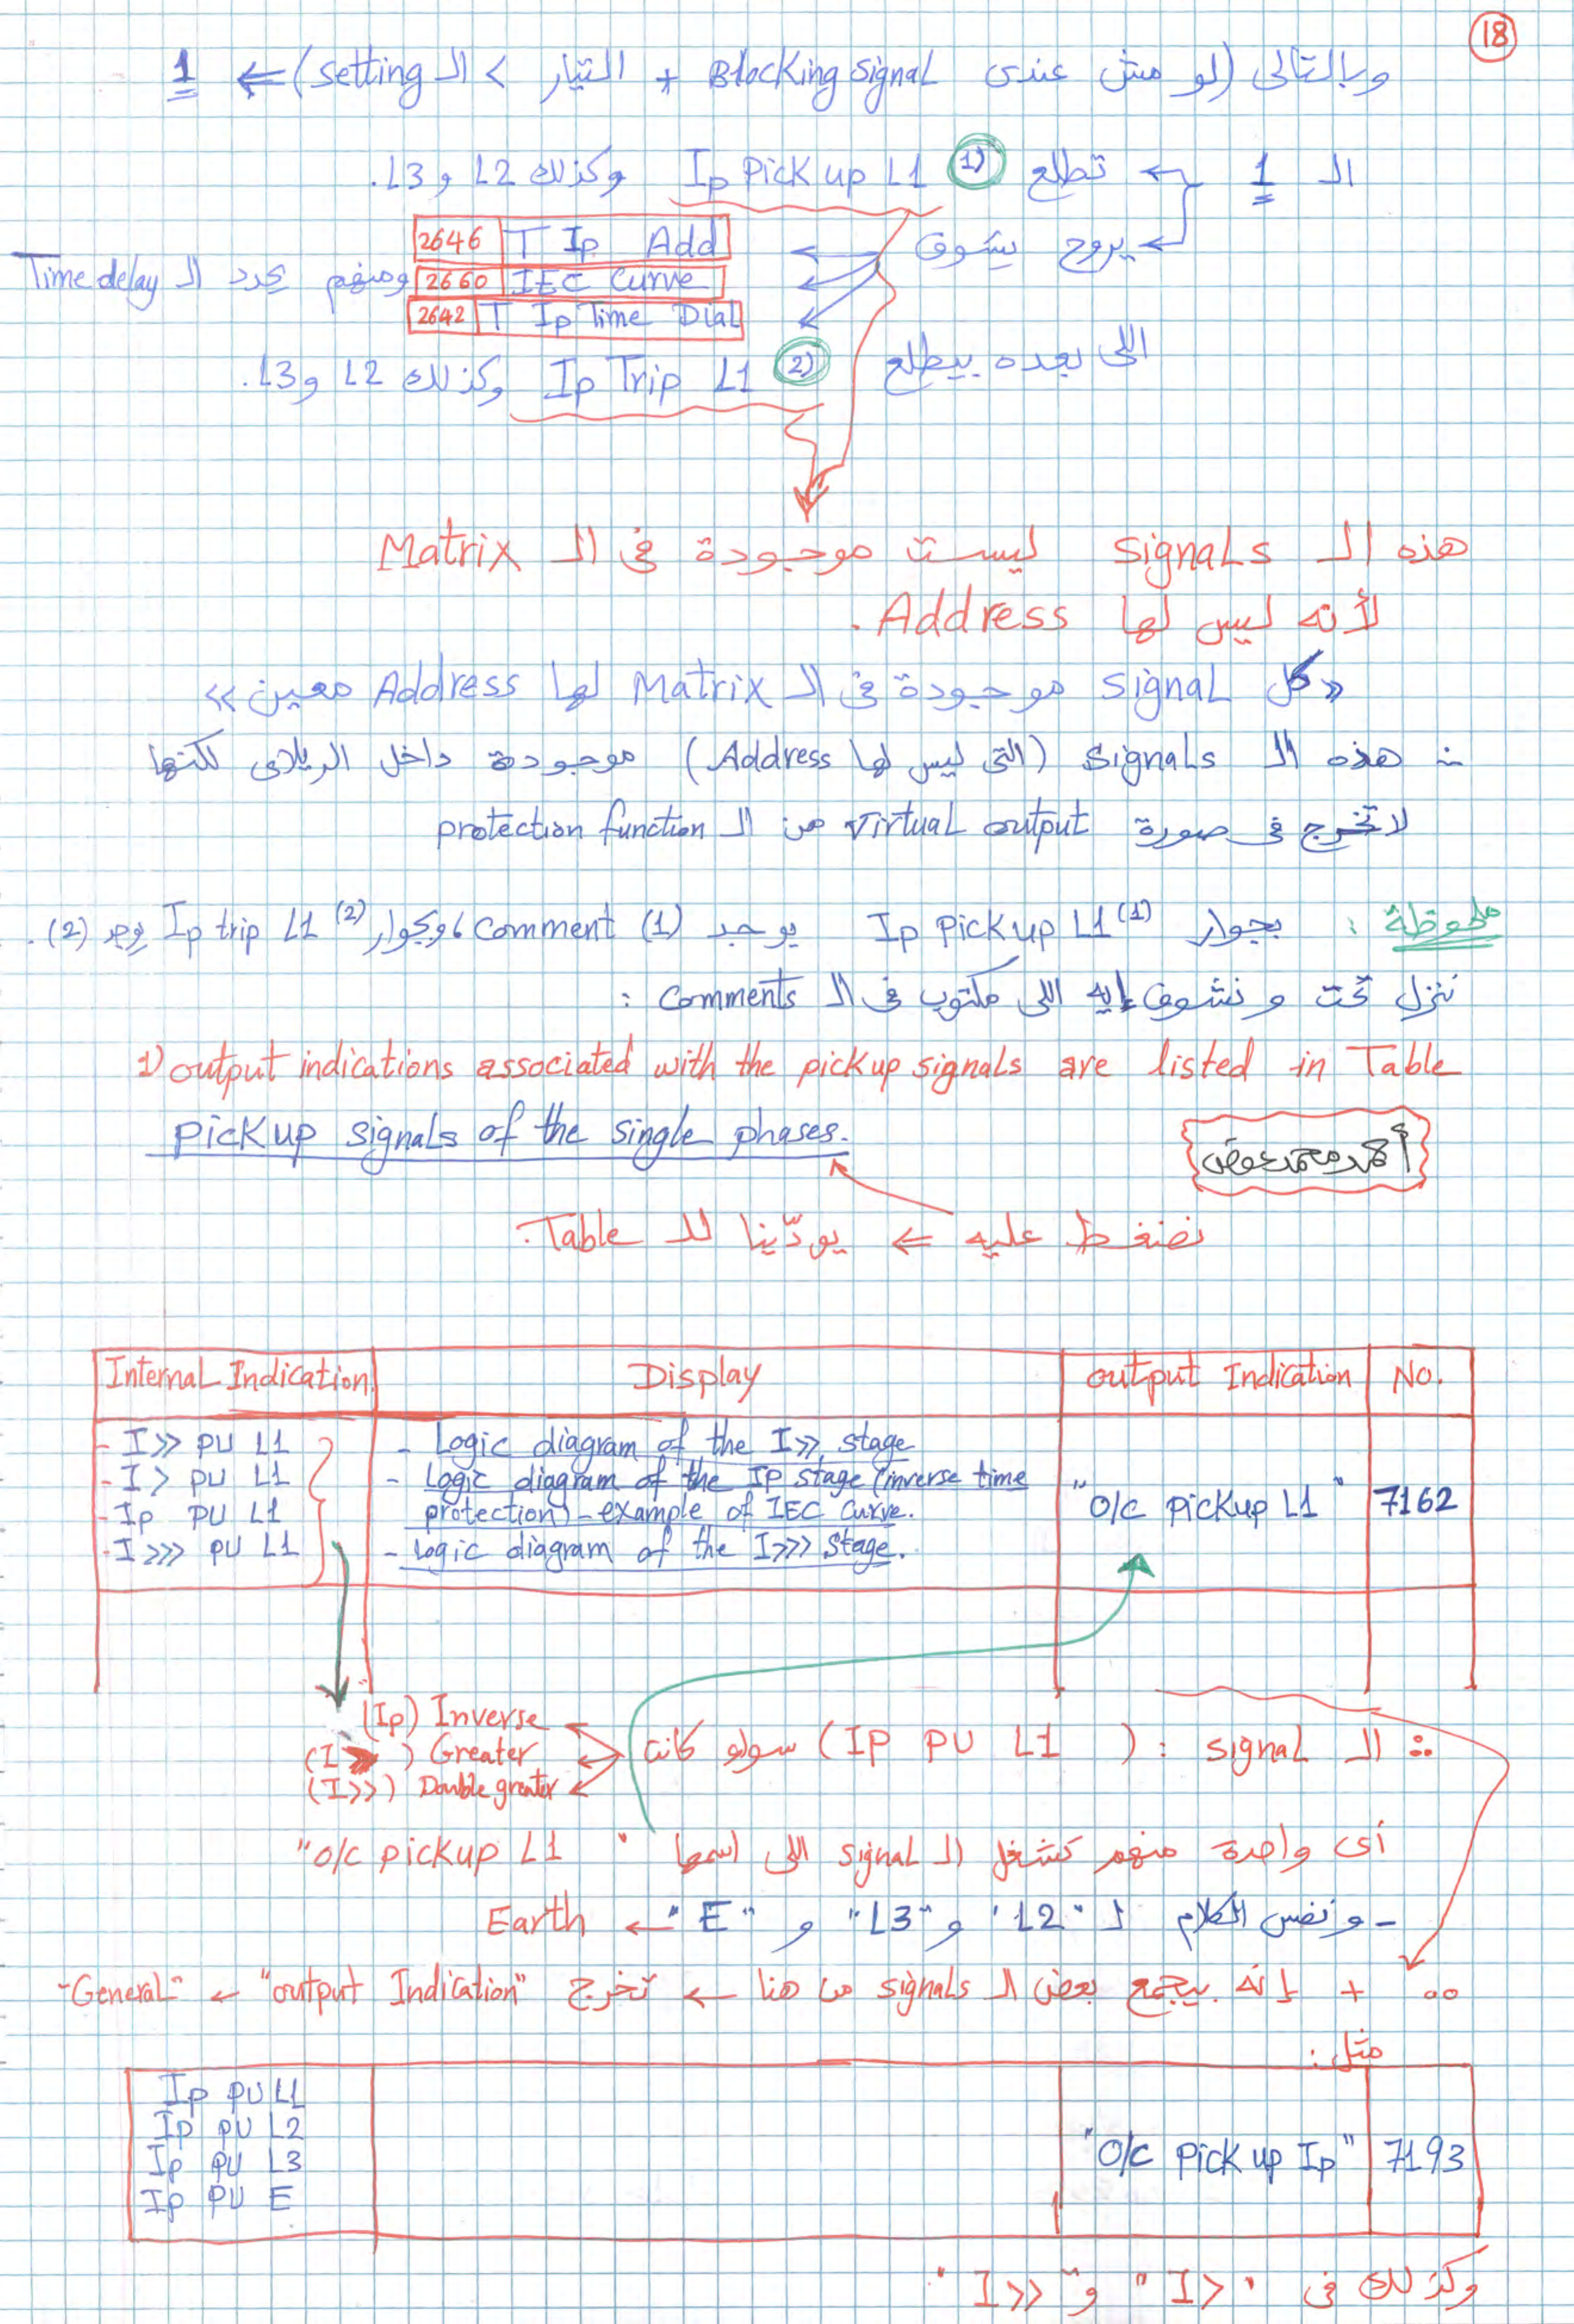 18
وبالتالى (لو مش عندى Blocking signal + التيار > الـ setting) ⇐ 1
الـ 1 ← تطلع (1) Ip Pick up L1 وكذلك L2 و L3.
← يروح يشوف
2646 T Ip Add
2660 IEC Curve ومنهم يحدد الـ Time delay
2642 T Ip Time Dial
اللى بعده بيطلع (2) Ip Trip L1 وكذلك L2 و L3.
هذه الـ signals ليست موجودة فى الـ Matrix
لأنه ليس لها Address.
«كل signal موجودة فى الـ Matrix لها Address معين»
∴ هذه الـ signals (التى ليس لها Address) موجودة داخل الريلاى لكنها
لا تخرج فى صورة virtual output من الـ protection function
ملحوظة : بجوار Ip Pick up L1 (1) يوجد comment (1) ، وبجوار Ip trip L1 (2) يوجد (2).
ننزل تحت و نشوف إيه اللى مكتوب فى الـ comments :
1) output indications associated with the pickup signals are listed in Table
pick up signals of the single phases.
أحمد محمد عوض
نضغط عليه ⇐ يودّينا للـ Table.
Internal Indication Display output Indication No.
- I>> PU L1 - Logic diagram of the I>> stage
- I> PU L1 - Logic diagram of the IP stage (inverse time
- Ip PU L1 protection) - example of IEC Curve. "O/c pickup L1" 7162
- I>>> PU L1 - Logic diagram of the I>>> stage.
∴ الـ signal : (IP PU L1) سواء كانت
(Ip) Inverse
(I>) Greater
(I>>) Double greater
أى واحدة منهم تشغل الـ signal اللى اسمها "O/c pickup L1"
- ونفس الكلام لـ "L2" و "L3" و "E" ← Earth
∴ + إنه بيجمع بعض الـ signals من هنا ← تخرج "output Indication" ← "General"
مثل :
Ip PU L1
Ip PU L2
Ip PU L3 "O/c Pick up Ip" 7193
Ip PU E
وكذلك فى "I>" و "I>>"